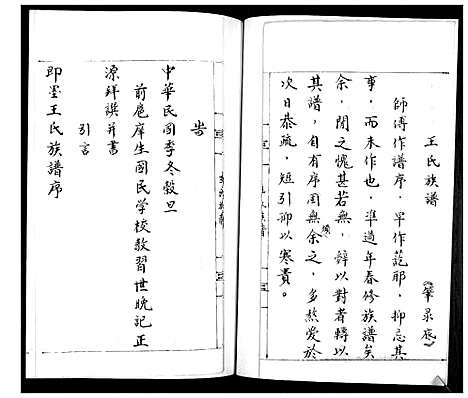 王氏族譜
(肇录底)
師傅作譜序，早作乾耶，抑忘其
事，而未作也，準過年春修族譜矣
余，聞之愧甚若無，辭以對者轉以
其譜，自有序固無須余之，多熬爱於
次日恭疏，短引仰以寒責。
崇
中華民国季冬榖旦
前庠生國民学校教習世晚記正
源拜譔并書
引言
即墨王氏族譜序